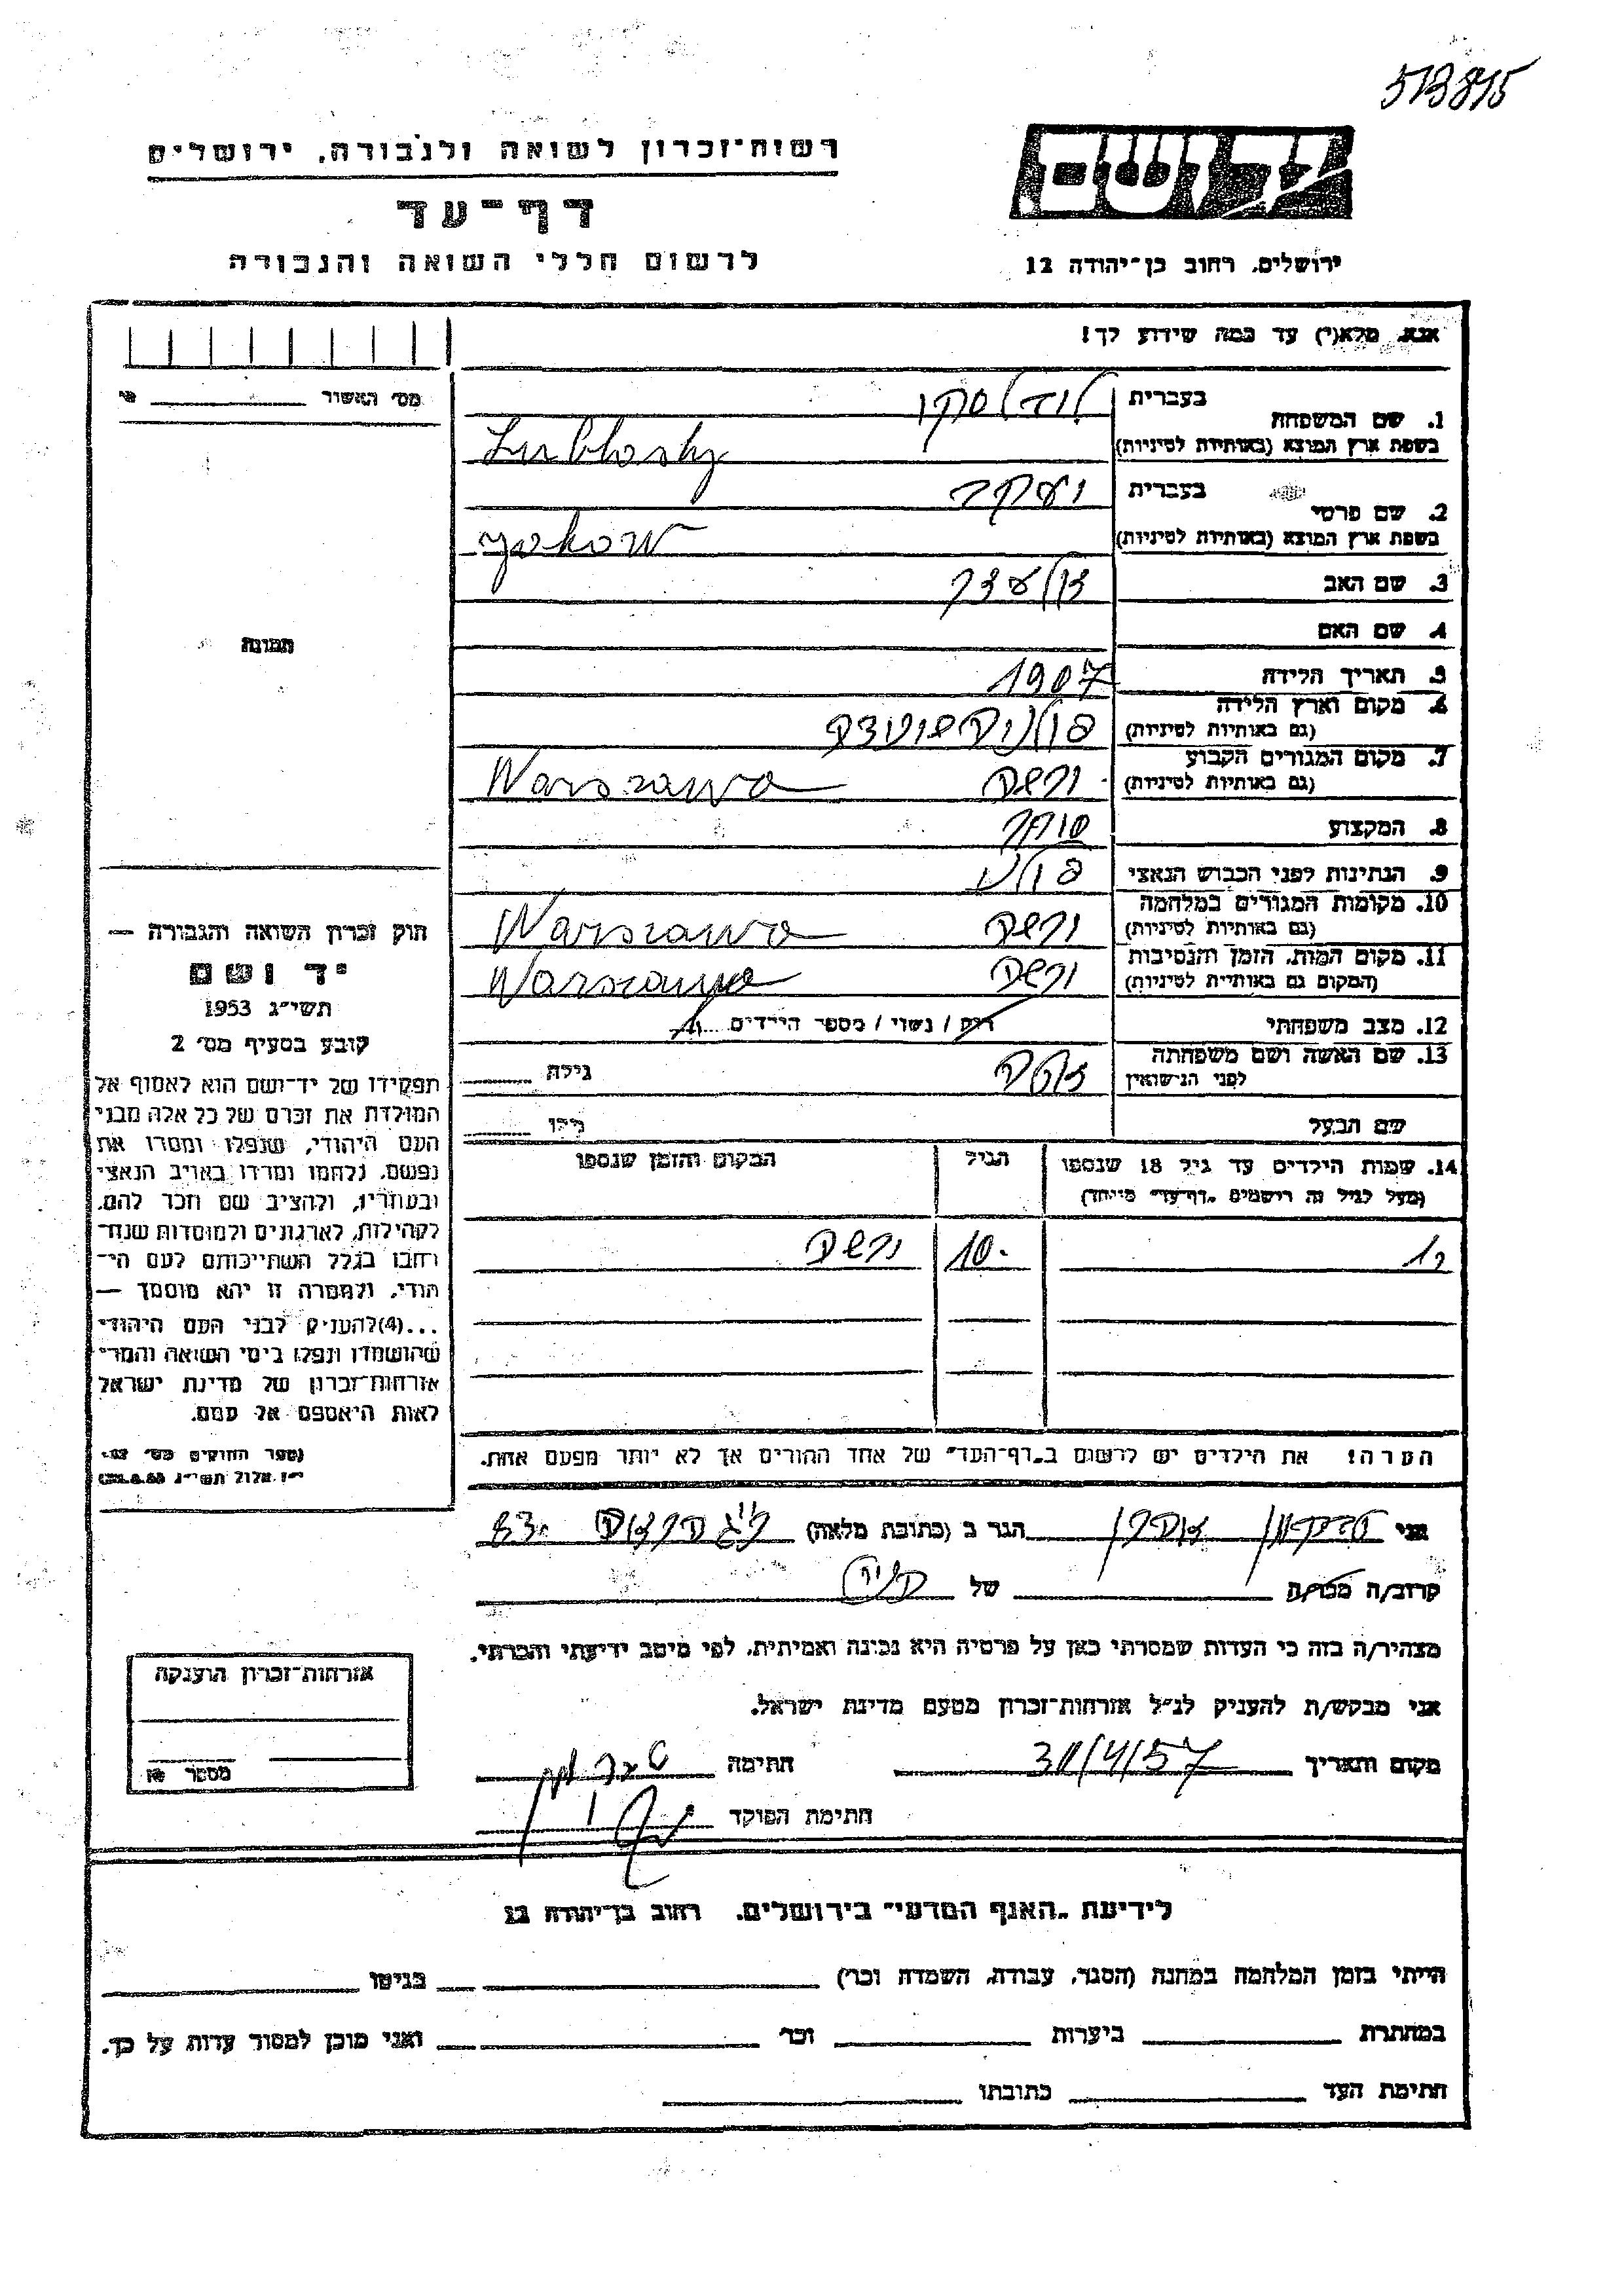 573875
רשות־זכרון לשואה ולגבורה, ירושלים
דף־עד
לרשום חללי השואה והגבורה
יד ושם
ירושלים, רחוב בן־יהודה 12
אנא, מלא(י) עד כמה שידוע לך!
מס׳ האשור
1. שם המשפחה
בעברית
בשפת ארץ המוצא (באותיות לטיניות)
Lublosky
2. שם פרטי
בעברית יעקב
בשפת ארץ המוצא (באותיות לטיניות) yakow
3. שם האב
4. שם האם
תמונה
5. תאריך הלידה 1907
6. מקום וארץ הלידה
(גם באותיות לטיניות)
7. מקום המגורים הקבוע
(גם באותיות לטיניות) ורשה Warszawa
8. המקצוע סוחר
9. הנתינות לפני הכבוש הנאצי פולני
10. מקומות המגורים במלחמה
(גם באותיות לטיניות) ורשה Warszawa
11. מקום המות, הזמן והנסיבות
(המקום גם באותיות לטיניות) ורשה Warszawa
12. מצב משפחתי רוק / נשוי / מספר הילדים
13. שם האשה ושם משפחתה
לפני הנישואין
גילה
שם הבעל
גילו
14. שמות הילדים עד גיל 18 שנספו
(מעל לגיל זה רושמים „דף־עד״ מיוחד)
הגיל
המקום והזמן שנספו
10 ורשה
הערה! את הילדים יש לרשום ב„דף־העד״ של אחד ההורים אך לא יותר מפעם אחת.
חוק זכרון השואה והגבורה —
יד ושם
תשי״ג 1953
קובע בסעיף מס׳ 2
תפקידו של יד־ושם הוא לאסוף אל
המולדת את זכרם של כל אלה מבני
העם היהודי, שנפלו ומסרו את
נפשם, נלחמו ומרדו באויב הנאצי
ובעוזריו, ולהציב שם וזכר להם,
לקהילות, לארגונים ולמוסדות שנח־
רבו בגלל השתייכותם לעם הי־
הודי, ולמטרה זו יהא מוסמך —
...(4)להעניק לבני העם היהודי
שהושמדו ונפלו בימי השואה והמרי
אזרחות־זכרון של מדינת ישראל
לאות היאספם אל עמם.
(ספר החוקים מס׳ 132,
י״ז אלול תשי״ג 28.8.53)
אני הגר ב (כתובת מלאה)
קרוב/ה מכר/ה של
מצהיר/ה בזה כי העדות שמסרתי כאן על פרטיה היא נכונה ואמיתית, לפי מיטב ידיעתי והכרתי.
אני מבקש/ת להעניק לנ״ל אזרחות־זכרון מטעם מדינת ישראל.
מקום ותאריך חתימה
חתימת הפוקד
אזרחות־זכרון הוענקה
מספר
לידיעת „האגף המדעי״ בירושלים, רחוב בן־יהודה 12
הייתי בזמן המלחמה במחנה (הסגר, עבודה, השמדה וכו׳) בגיטו
במחתרת ביערות וכו׳ ואני מוכן למסור עדות על כך.
חתימת העד כתובתו